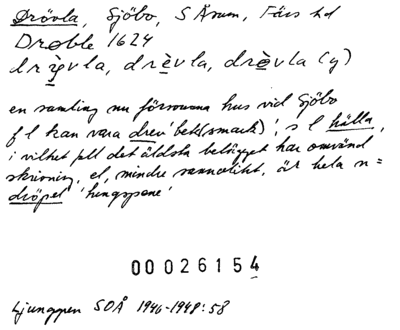 Drövla, Sjöbo, S Åsum, Färs hd
Droble 1624
drè̤vla, drèvla, drè̤vla (y)
en samling nu försvunna hus vid Sjöbo
f l kan vara drev 'betes(mark)', s l källa,
i vilket fall det äldsta belägget har omvänd
skrivning, el, mindre sannolikt, är hela n =
dröpel 'hängspene'
00026154
Ljunggren SOÅ 1946-1948:58